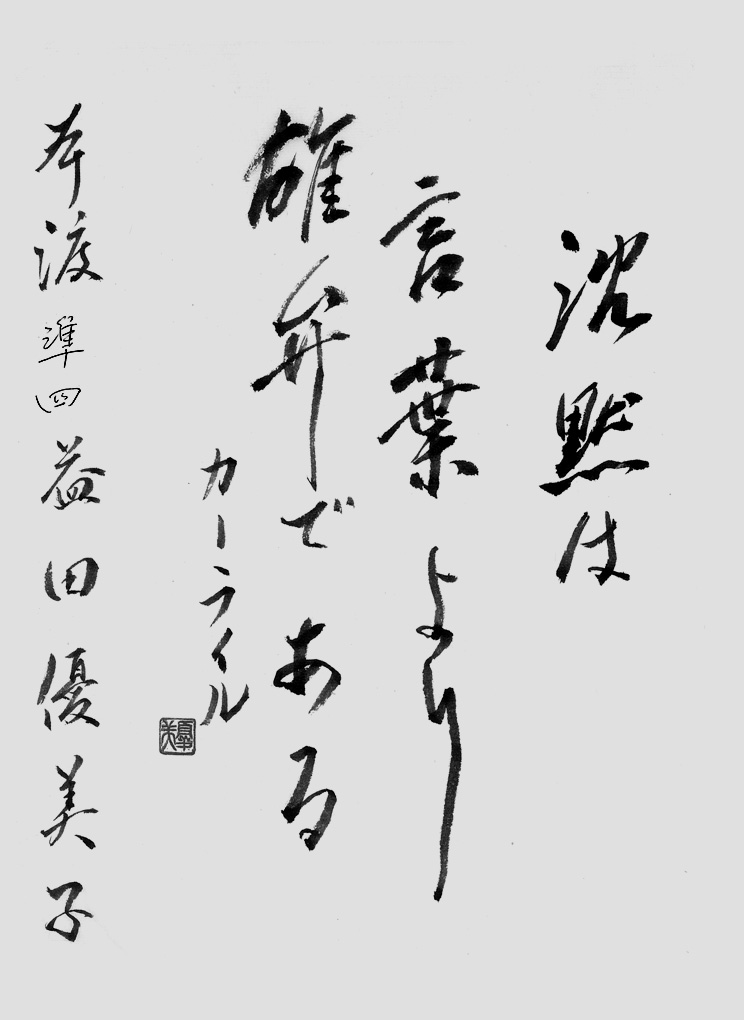 沈黙は
言葉より
雄弁である
カーライル
本渡 準四 益田優美子